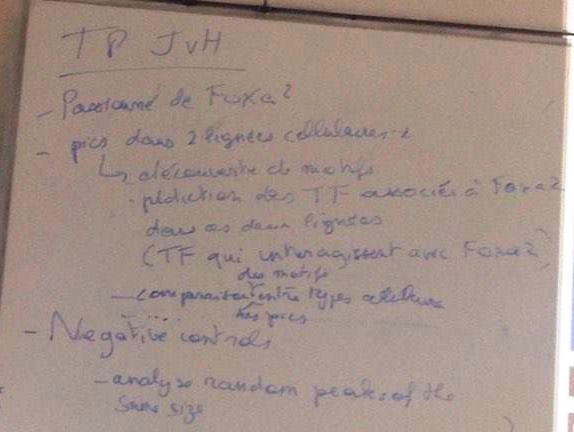 TP JvH
- Passionné de Foxa2
- pics dans 2 lignées cellulaires
↳ découverte de motifs
- prédiction des TF associés à Foxa2
dans ces deux lignées
(TF qui interagissent avec Foxa2)
- comparaison entre types cellulaires
des motifs
des pics
....
- Negative controls
- analyse random peaks of the
same size